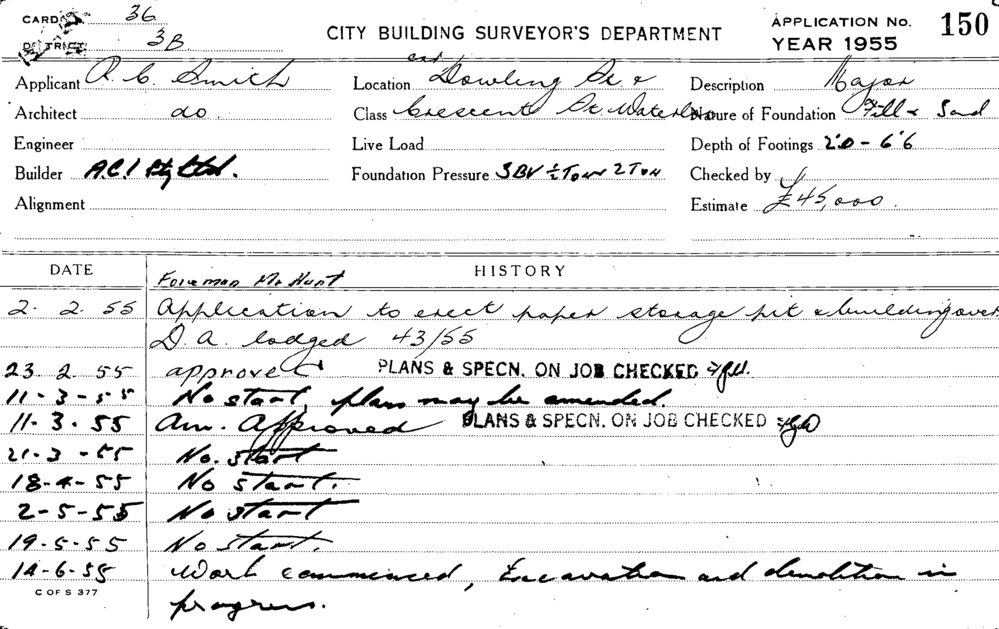 CARD 36
DISTRICT 3B
CITY BUILDING SURVEYOR'S DEPARTMENT
APPLICATION No. 150
YEAR 1955
Applicant A. C. Smith
Location cnr Dowling St &
Description Major
Architect do
Class Crescent St Waterloo
Nature of Foundation Fill & Sand
Engineer
Live Load
Depth of Footings 2'0 - 6'6
Builder A.C.I Pty Ltd.
Foundation Pressure SBV ½ Ton 2 Ton
Checked by
Alignment
Estimate £45,000.
DATE HISTORY
Foreman Mr Hunt
2. 2. 55 Application to erect paper storage pit & building over.
D.A. lodged 43/55
23. 2. 55 approved PLANS & SPECN. ON JOB CHECKED
11-3-55 No start, plans may be amended.
11. 3. 55 Am. Approved PLANS & SPECN. ON JOB CHECKED
21-3-55 No. start
18-4-55 No start.
2-5-55 No start
19-5-55 No start.
14-6-55 Work commenced, Excavation and demolition in
progress.
C OF S 377